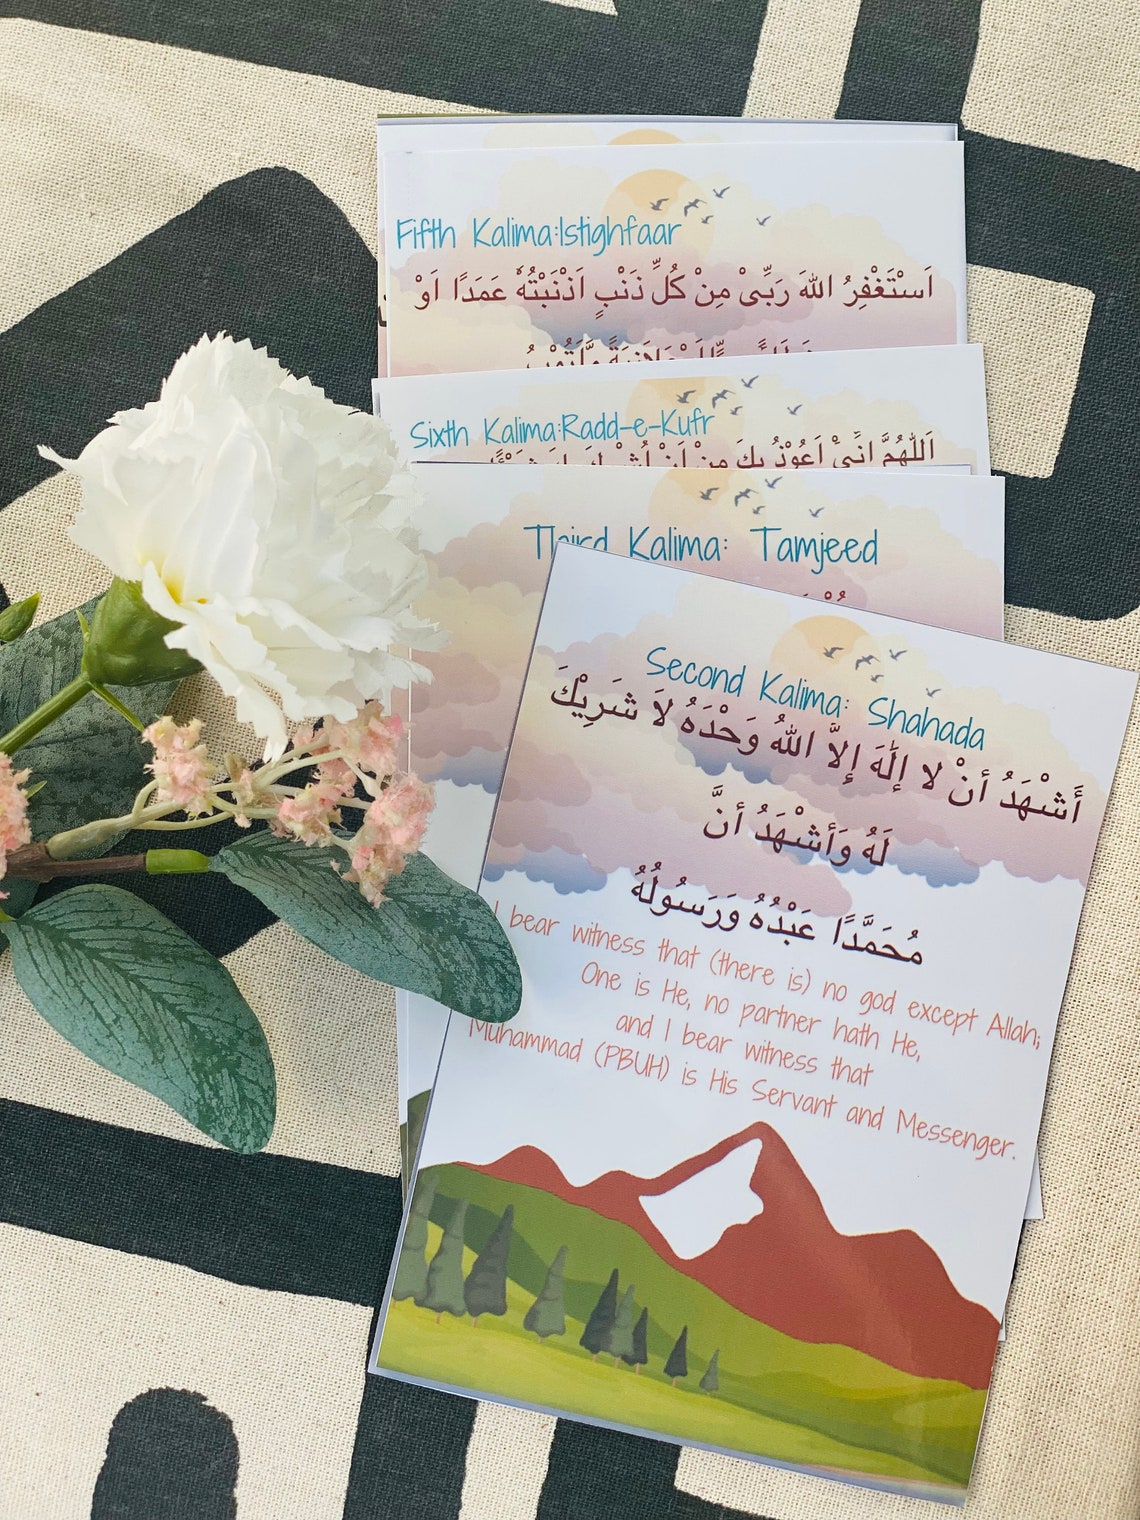 Fifth Kalima:Istighfaar
اَسْتَغْفِرُ اللهَ رَبِّىْ مِنْ كُلِّ ذَنْبٍ اَذْنَبْتُهٗ عَمَدًا اَوْ
Sixth Kalima:Radd-e-Kufr
اَللّٰهُمَّ اِنِّیْٓ اَعُوْذُ بِكَ مِنْ اَنْ
Third Kalima: Tamjeed
Second Kalima: Shahada
أَشْهَدُ أنْ لا إلَٰهَ إلَّا اللهُ وَحْدَهُ لَا شَرِيْكَ
لَهُ وَأشْهَدُ أنَّ
مُحَمَّدًا عَبْدُهُ وَرَسُولُهُ
I bear witness that (there is) no god except Allah;
One is He, no partner hath He,
and I bear witness that
Muhammad (PBUH) is His Servant and Messenger.